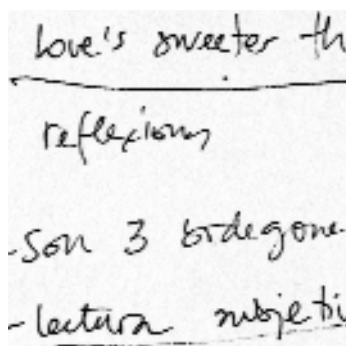 love's sweeter th
reflexions
- Son 3 bodegone
- lectura subjeti